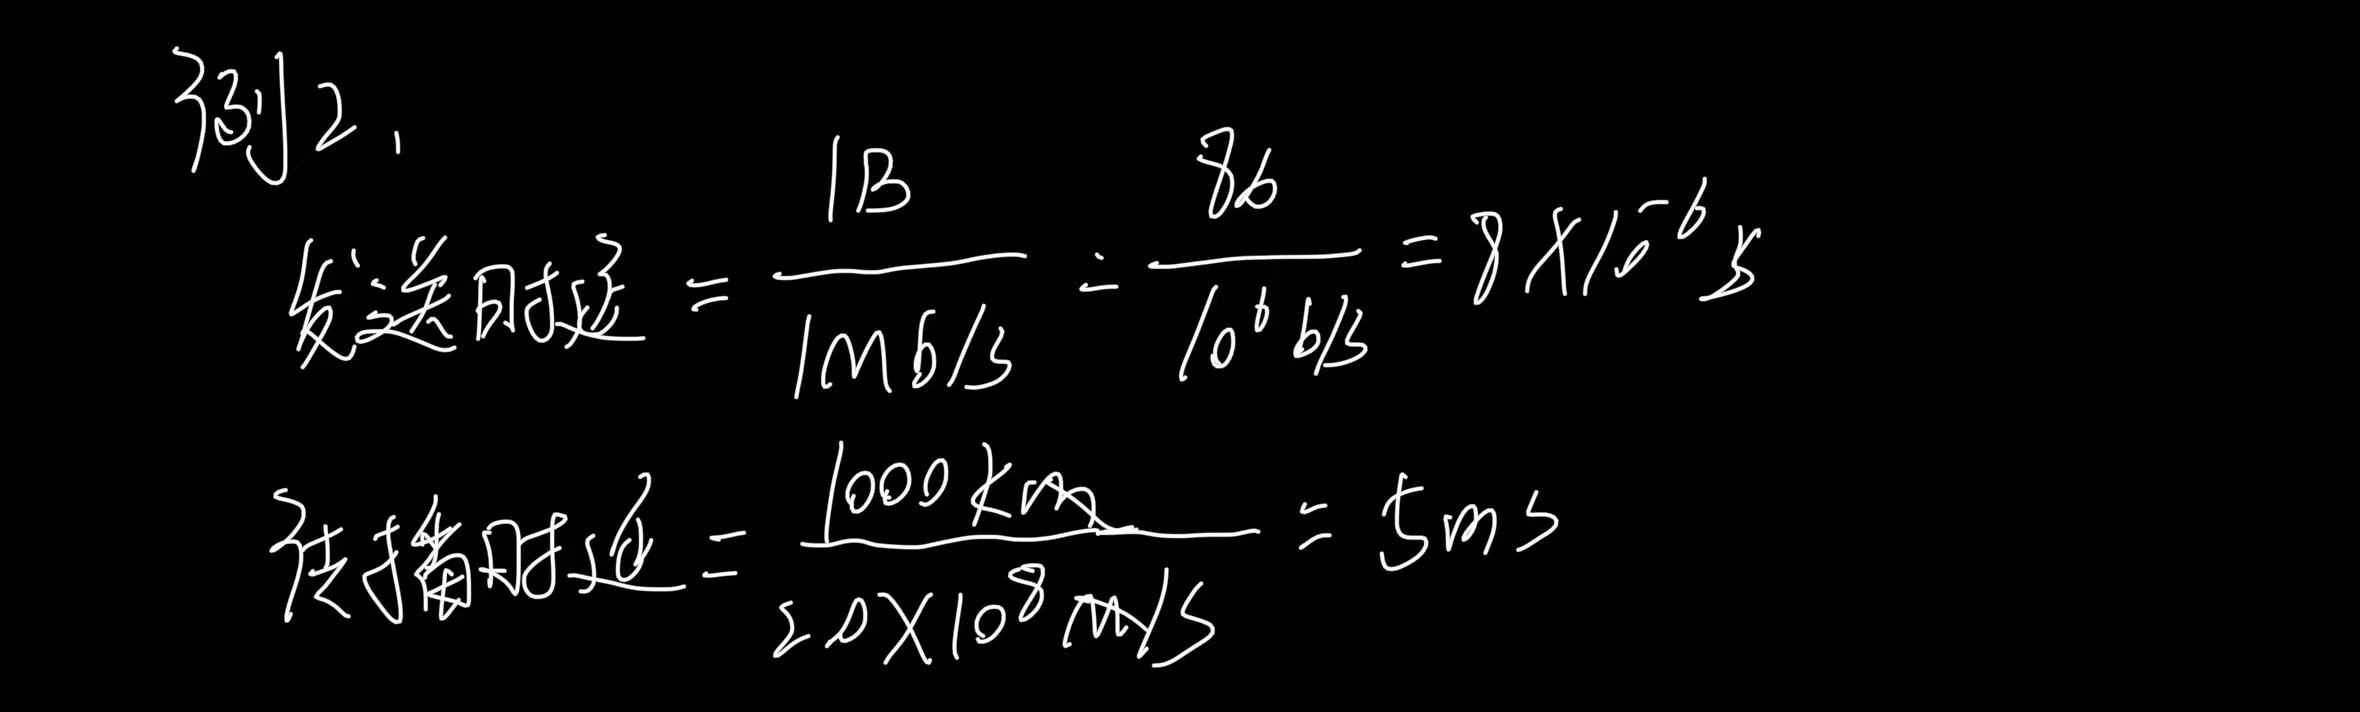 例2、
发送时延 = 1B / 1Mb/s = 8b / 10^6 b/s = 8×10^-6 s
传播时延 = 1000km / 2.0×10^8 m/s = 5ms